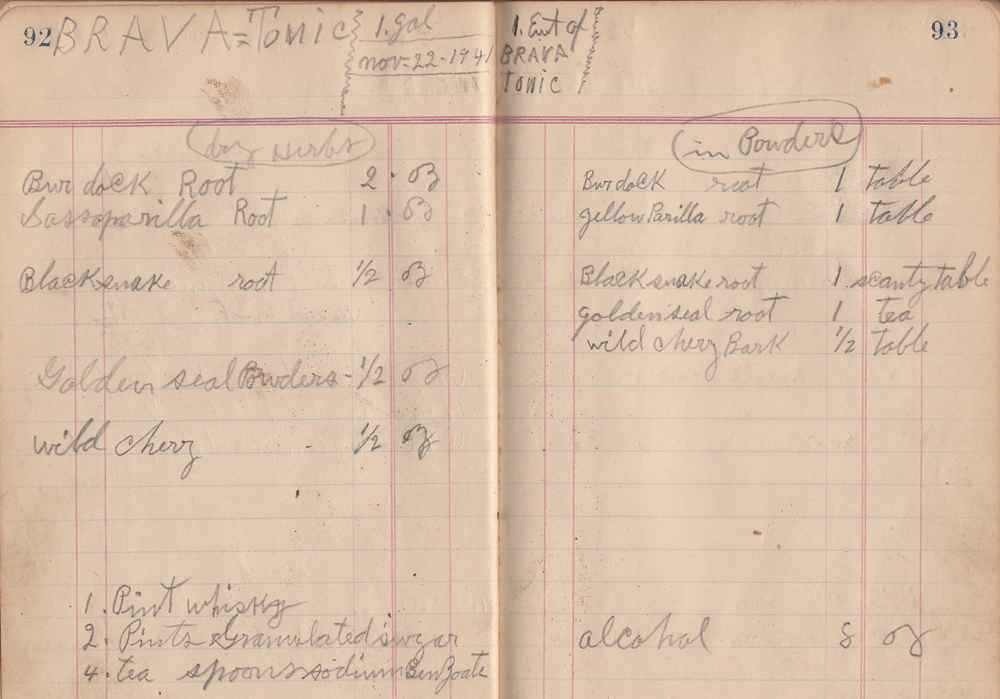 92 BRAVA=Tonic 1.gal
nov=22-1941
dry Herbs
Burdock Root 2. oz
Sassoparilla Root 1. oz
Blacksnake root 1/2 oz
Golden seal Powders - 1/2 oz
wild cherz - 1/2 oz
1. Pint whisky
2. Pints Granulated sugar
4. tea spoons sodium Benzoate
93
1. Ext of
BRAVA
Tonic
in Powders
Burdock root 1 table
yellow Parilla root 1 table
Black snake root 1. scanty table
golden seal root 1 tea
wild cherz Bark 1/2 table
alcohal 8 oz